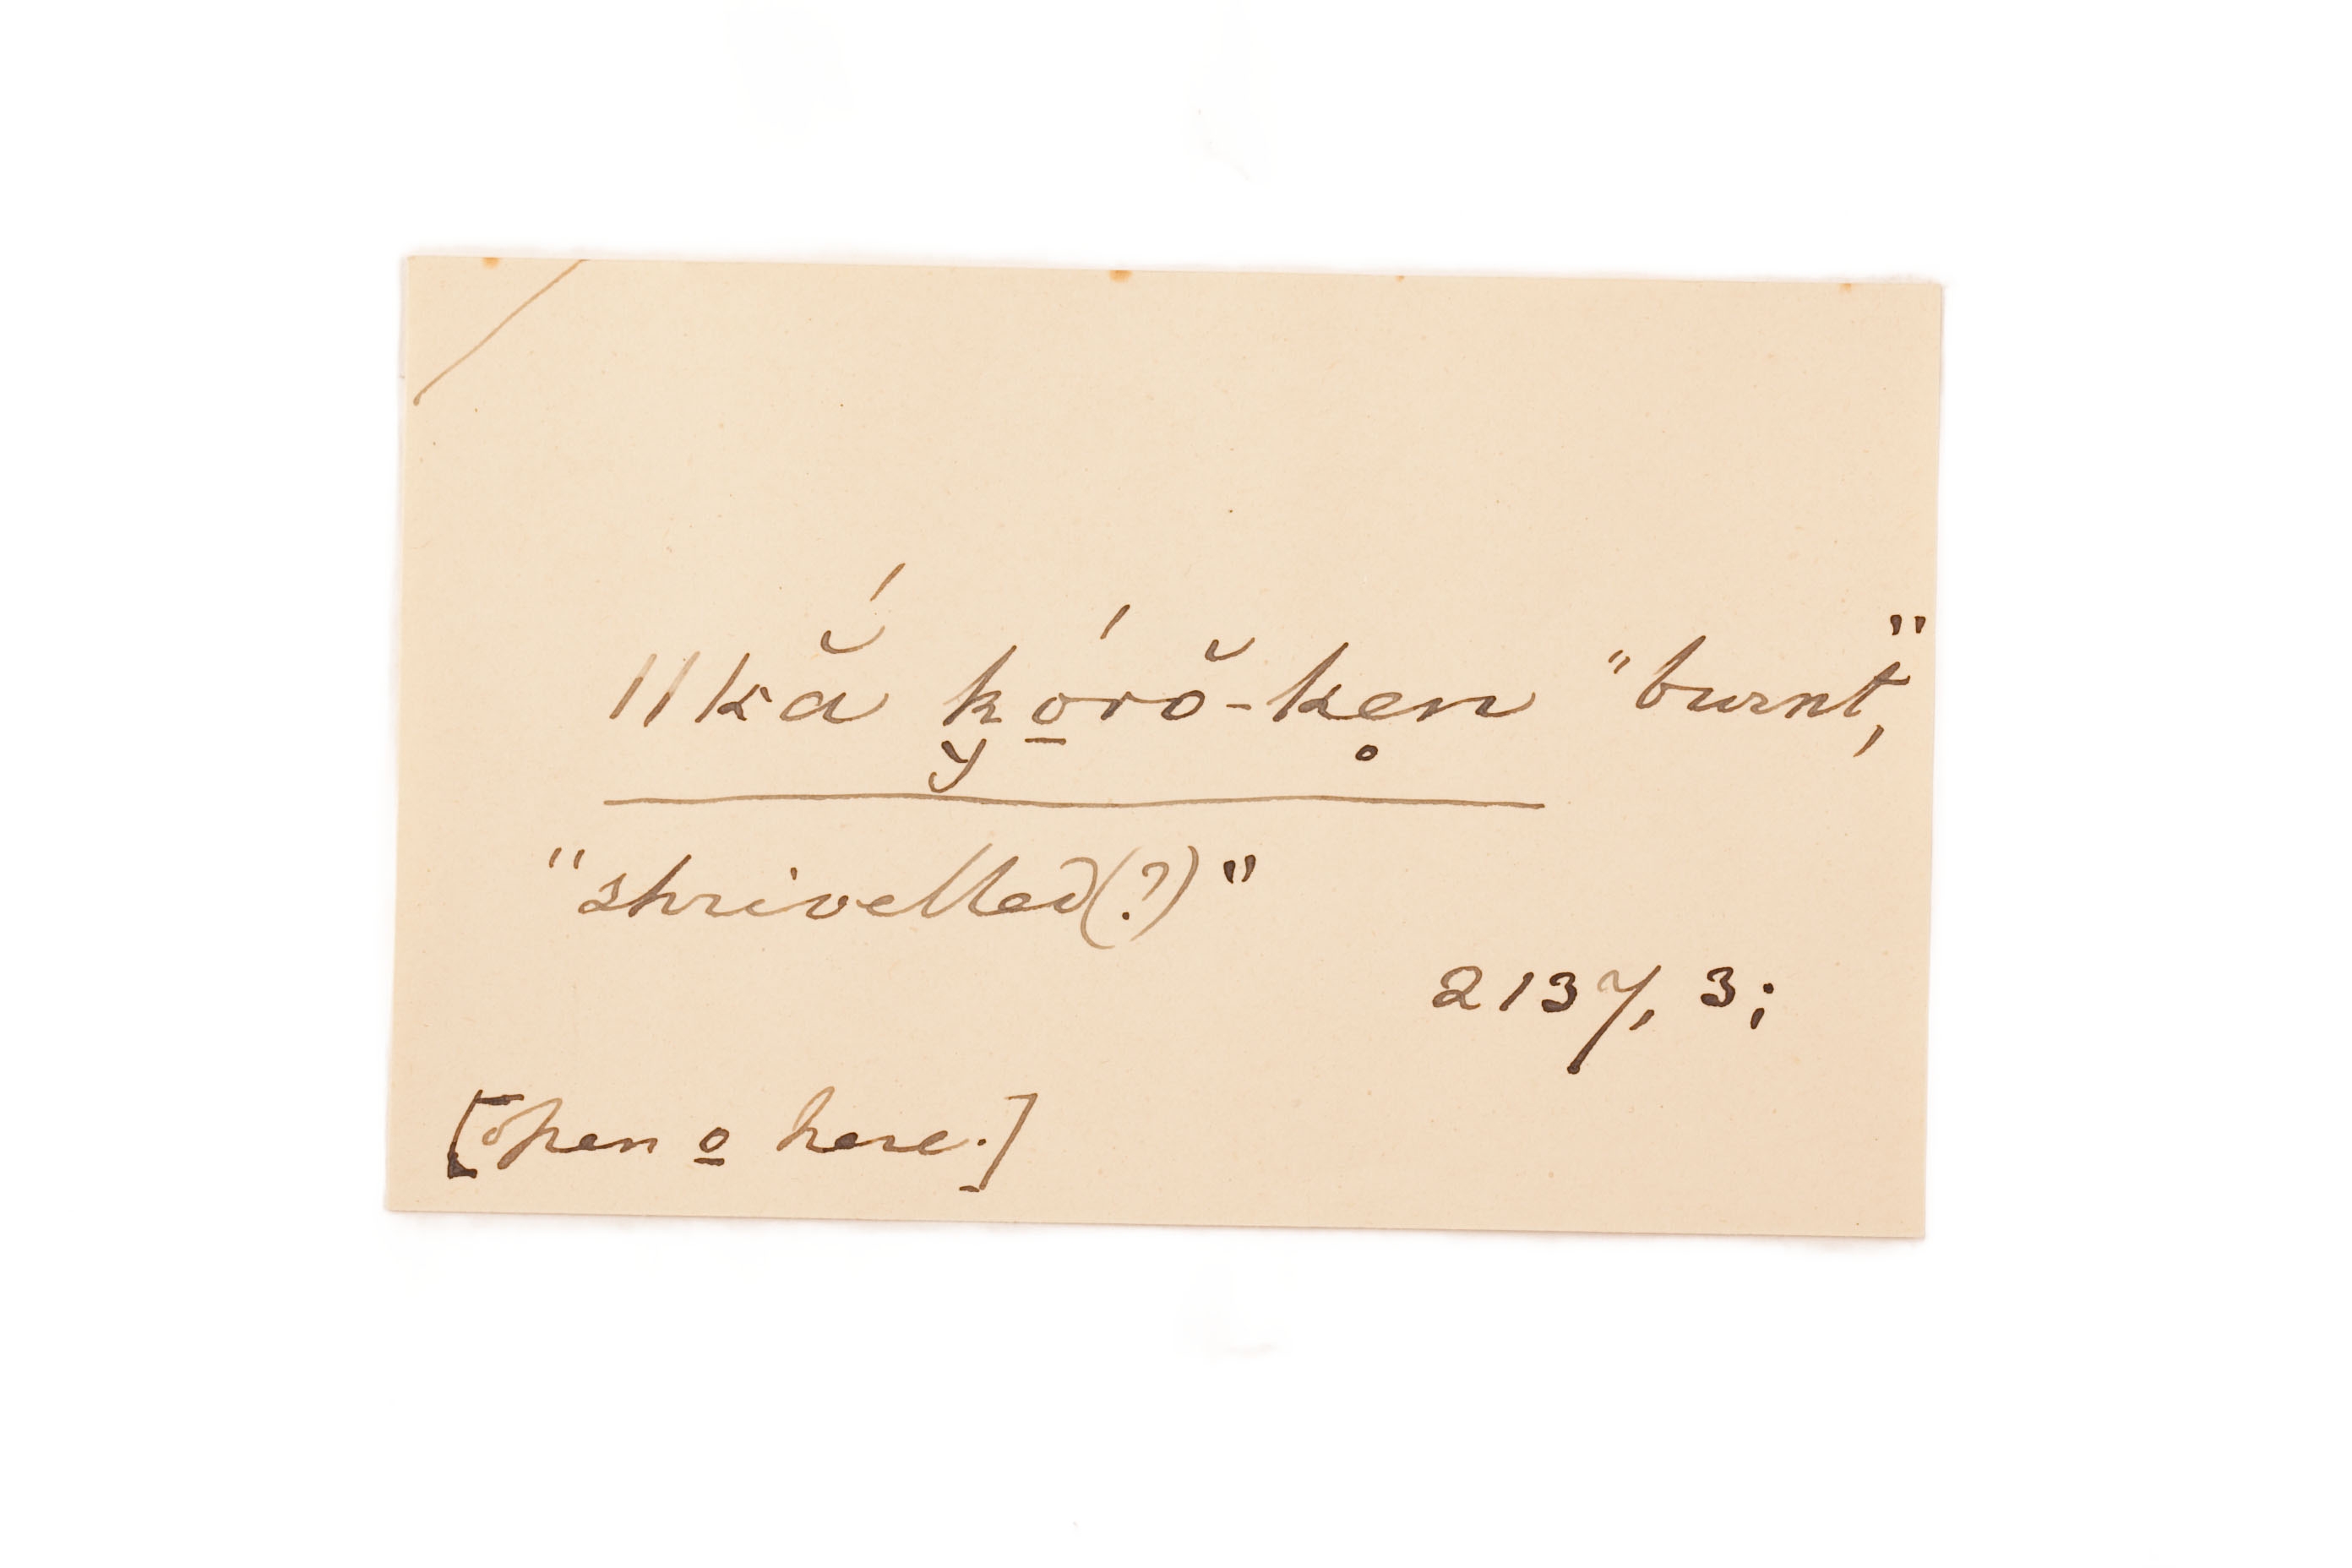 ǁkắ k̯ó̱rŏ-ke̥n "burnt,"
"shrivelled(?)"
2137, 3;
[open o̱ here.]